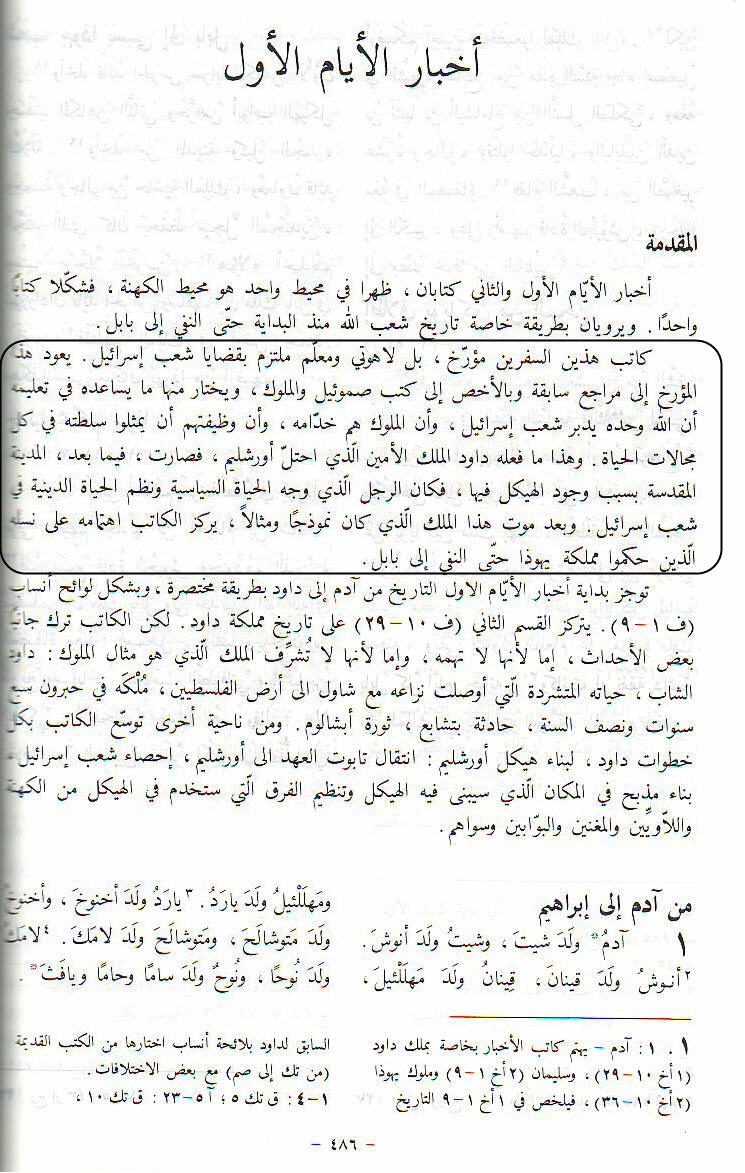 أخبار الأيام الأول
المقدمة
أخبار الأيّام الأول والثاني كتابان، ظهرا في محيط واحد هو محيط الكهنة، فشكّلا كتابًا
واحدًا. ويرويان بطريقة خاصة تاريخ شعب الله منذ البداية حتّى النفي إلى بابل.
كاتب هذين السفرين مؤرّخ، بل لاهوتي ومعلّم ملتزم بقضايا شعب إسرائيل. يعود هذا
المؤرخ إلى مراجع سابقة وبالأخص إلى كتب صموئيل والملوك، ويختار منها ما يساعده في تعليمه
أن الله وحده يدبر شعب إسرائيل، وأن الملوك هم خدّامه، وأن وظيفتهم أن يمثلوا سلطته في كل
مجالات الحياة. وهذا ما فعله داود الملك الأمين الّذي احتلّ أورشليم، فصارت، فيما بعد، المدينة
المقدسة بسبب وجود الهيكل فيها، فكان الرجل الّذي وجه الحياة السياسية ونظم الحياة الدينية في
شعب إسرائيل. وبعد موت هذا الملك الّذي كان نموذجًا ومثالاً، يركز الكاتب اهتمامه على نسله
الّذين حكموا مملكة يهوذا حتّى النفي إلى بابل.
توجز بداية أخبار الأيّام الاول التاريخ من آدم إلى داود بطريقة مختصرة، وبشكل لوائح أنساب
(ف ١-٩). يتركز القسم الثاني (ف ١٠-٢٩) على تاريخ مملكة داود. لكن الكاتب ترك جانبًا
بعض الأحداث، إما لأنها لا تهمه، وإما لأنها لا تُشرِّف الملك الّذي هو مثال الملوك: داود
الشاب، حياته المتشردة الّتي أوصلت نزاعه مع شاول الى أرض الفلسطيين، مُلْكَه في حبرون سبع
سنوات ونصف السنة، حادثة بتشابع، ثورة أبشالوم. ومن ناحية أخرى توسّع الكاتب بكل
خطوات داود، لبناء هيكل أورشليم: انتقال تابوت العهد الى أورشليم، إحصاء شعب إسرائيل،
بناء مذبح في المكان الّذي سيبنى فيه الهيكل وتنظيم الفرق الّتي ستخدم في الهيكل من الكهنة
واللاّويِّين والمغنين والبوّابين وسواهم.
من آدم إلى إبراهيم
١ آدمُ* ولَدَ شيتَ، وشيتُ ولَدَ أنوشَ.
٢أنـوشُ ولَدَ قينانَ، قِينانُ ولَدَ مَهلَلْئيلَ،
ومَهلَلْئيلُ ولَدَ يارَدُ. ٣يارَدُ ولَدَ أخنوخَ، وأخنوخُ
ولَدَ مَتوشالَحَ، ومَتوشالَحَ ولَدَ لامَكَ. ٤لامَكُ
ولَدَ نُوحًا، ونُوحُ ولَدَ سامًا وحامًا ويافَثَ*.
١. ١: آدم - يهتم كاتب الأخبار بخاصة بملك داود
(١أخ ١٠-٢٩)، وسليمان (٢أخ ١-٩) وملوك يهوذا
(٢أخ ١٠-٣٦)، فيلخص في ١أخ ١-٩ التاريخ
السابق لداود بلائحة أنساب اختارها من الكتب القديمة
(من تك إلى صم) مع بعض الاختلافات.
١-٤: ق تك ٥؛ آ ٥-٢٣: ق تك ١٠،
- ٤٨٦ -